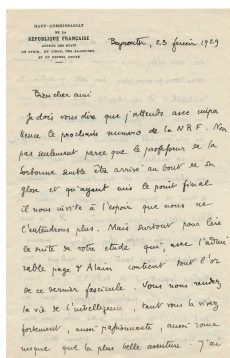 HAUT-COMMISSARIAT
DE LA
RÉPUBLIQUE FRANÇAISE
AUPRÈS DES ÉTATS
DE SYRIE, DU LIBAN, DES ALAOUITES
ET DU DJEBEL DRUZE
Beyrouth, 23 février 1929
Bien cher ami
Je dois vous dire que j'attends avec impa
tience le prochain numéro de la NRF. Non
pas seulement parce que le professeur de la
Sorbonne semble être arrivé au bout de sa
glose et qu'ayant mis le point final
il nous invite à l'espoir que nous ne
l'entendrons plus. Mais surtout pour lire
la suite de votre étude qui, avec l'admi
rable page d'Alain contient tout l'or
de ce dernier fascicule. Vous nous rendez
la vie de l'intelligence, tant vous la vivez
fortement, aussi passionnante, aussi roma
nesque que la plus belle aventure. J'ai